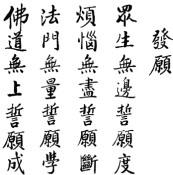 發願
眾生無邊誓願度
煩惱無盡誓願斷
法門無量誓願學
佛道無上誓願成